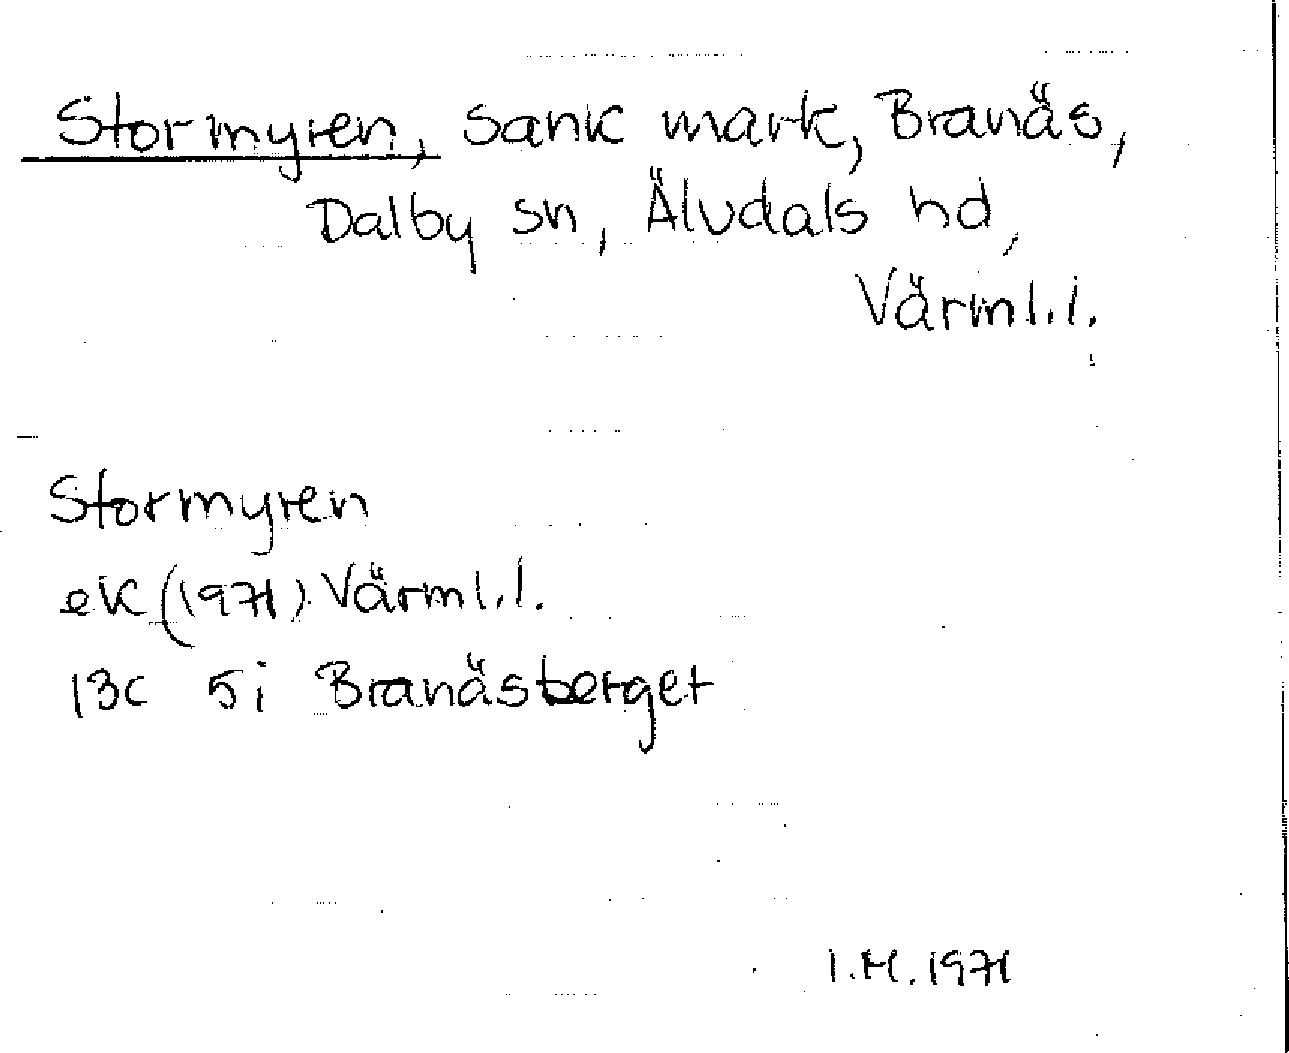 Stormyren, sank mark, Branäs,
Dalby sn, Älvdals hd,
Värml.l.
Stormyren
ek (1971) Värml.l.
13C 5i Branäsberget
I.M. 1971